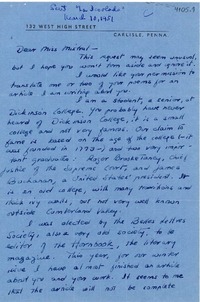 March 10, 1951
132 WEST HIGH STREET
CARLISLE, PENNA.
Dear Miss Mistral —
This request may seem unusual,
but I hope you won't
I would like your permission to
translate one or two of your poems for an
article I am writing about you.
I am a student, a senior, at
Dickinson College. You probably have never
heard of Dickinson College, it is a small
college and not very famous. Our claim to
fame is based on the age of the college — it
was founded in 1773 — and two very impor-
tant graduates — Roger Brooke Taney, Chief
Justice of the Supreme Court and James
Buchanan, a United States president. It
is an old college, with many traditions and
thick ivy walls, but not very well known
outside Cumberland Valley.
I was elected by the Belles Lettres
Society, also a very old society, to be
editor of the Hornbook, the literary
magazine. This year, for our winter
issue I have almost finished an article
about you and your work. It seems to me
that the article will not be complete